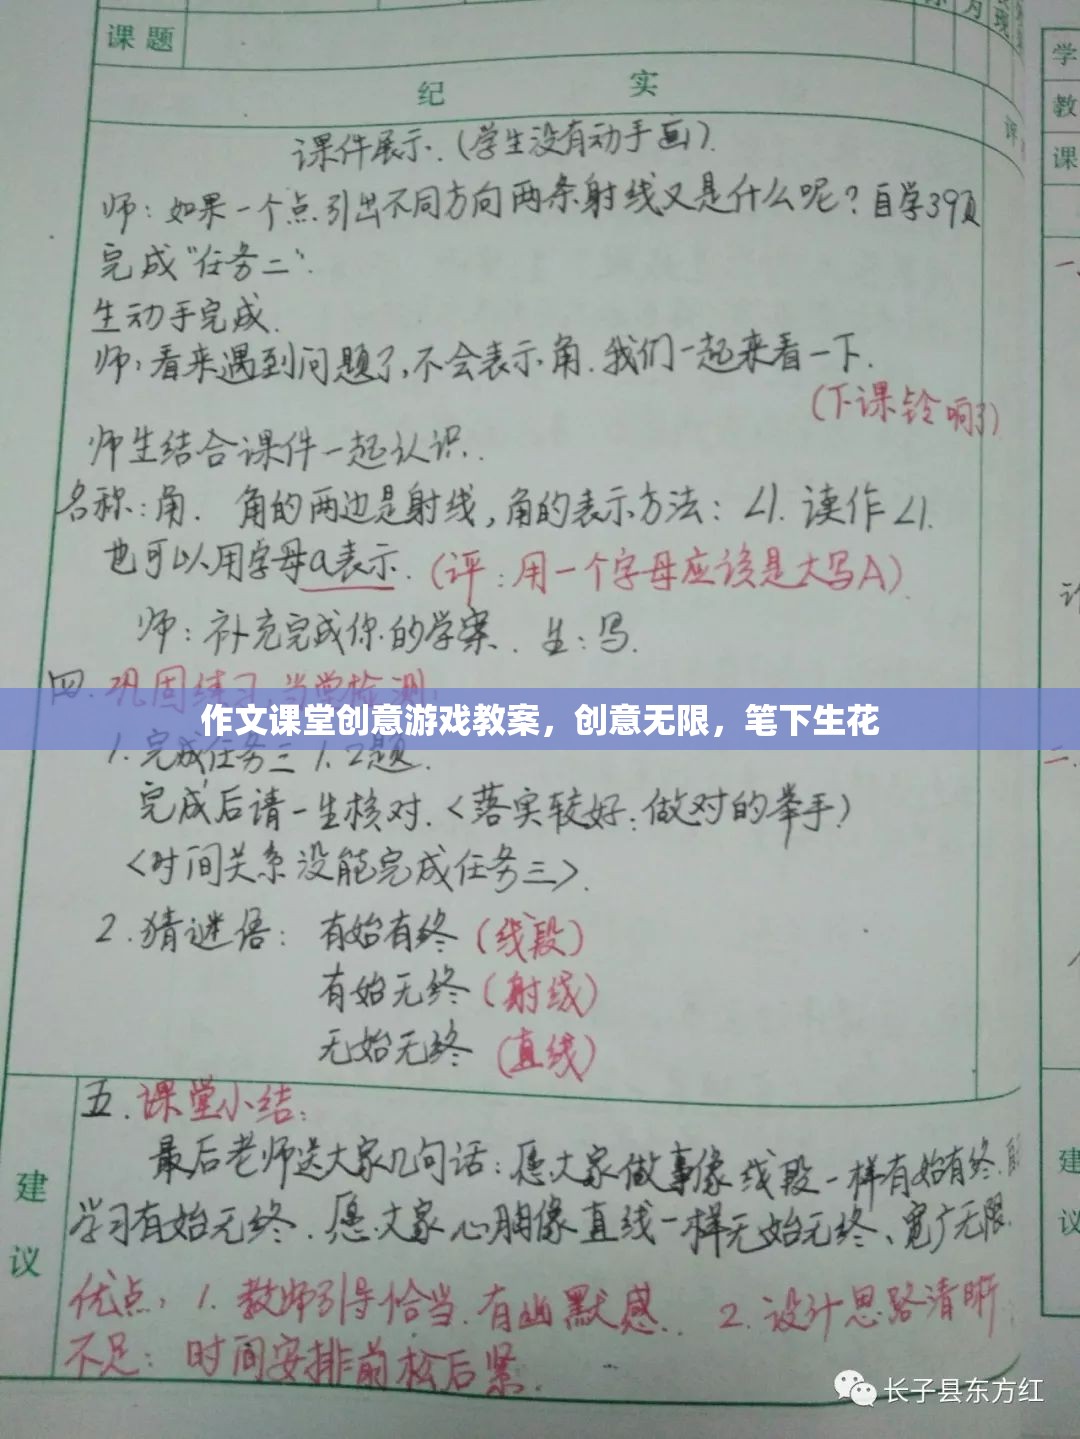 课题
纪 实
课件展示.(学生没有动手画).
师:如果一个点引出不同方向两条射线又是什么呢?自学39页
完成“任务二”.
生动手完成.
师:看来遇到问题了,不会表示角.我们一起来看一下.
(下课铃响了)
师生结合课件一起认识.
名称:角. 角的两边是射线,角的表示方法:∠1.读作∠1.
也可以用字母a表示.(评:用一个字母应该是大写A)
师:补充完成你的学案. 生:写.
四.巩固练习,当堂检测:
作文课堂创意游戏教案，创意无限，笔下生花
1.完成任务三 1.2题.
完成后请一生核对.<落实较好:做对的举手)
<时间关系没能完成任务三>.
2.猜谜语: 有始有终(线段)
有始无终(射线)
无始无终(直线)
五.课堂小结:
最后老师送大家几句话:愿大家做事像线段一样有始有终.
学习有始无终.愿大家心胸像直线一样无始无终、宽广无限.
建
议
优点:1.教师引导恰当.有幽默感. 2.设计思路清晰
不足:时间安排前松后紧.
长子县东方红
学
教
课
建
议